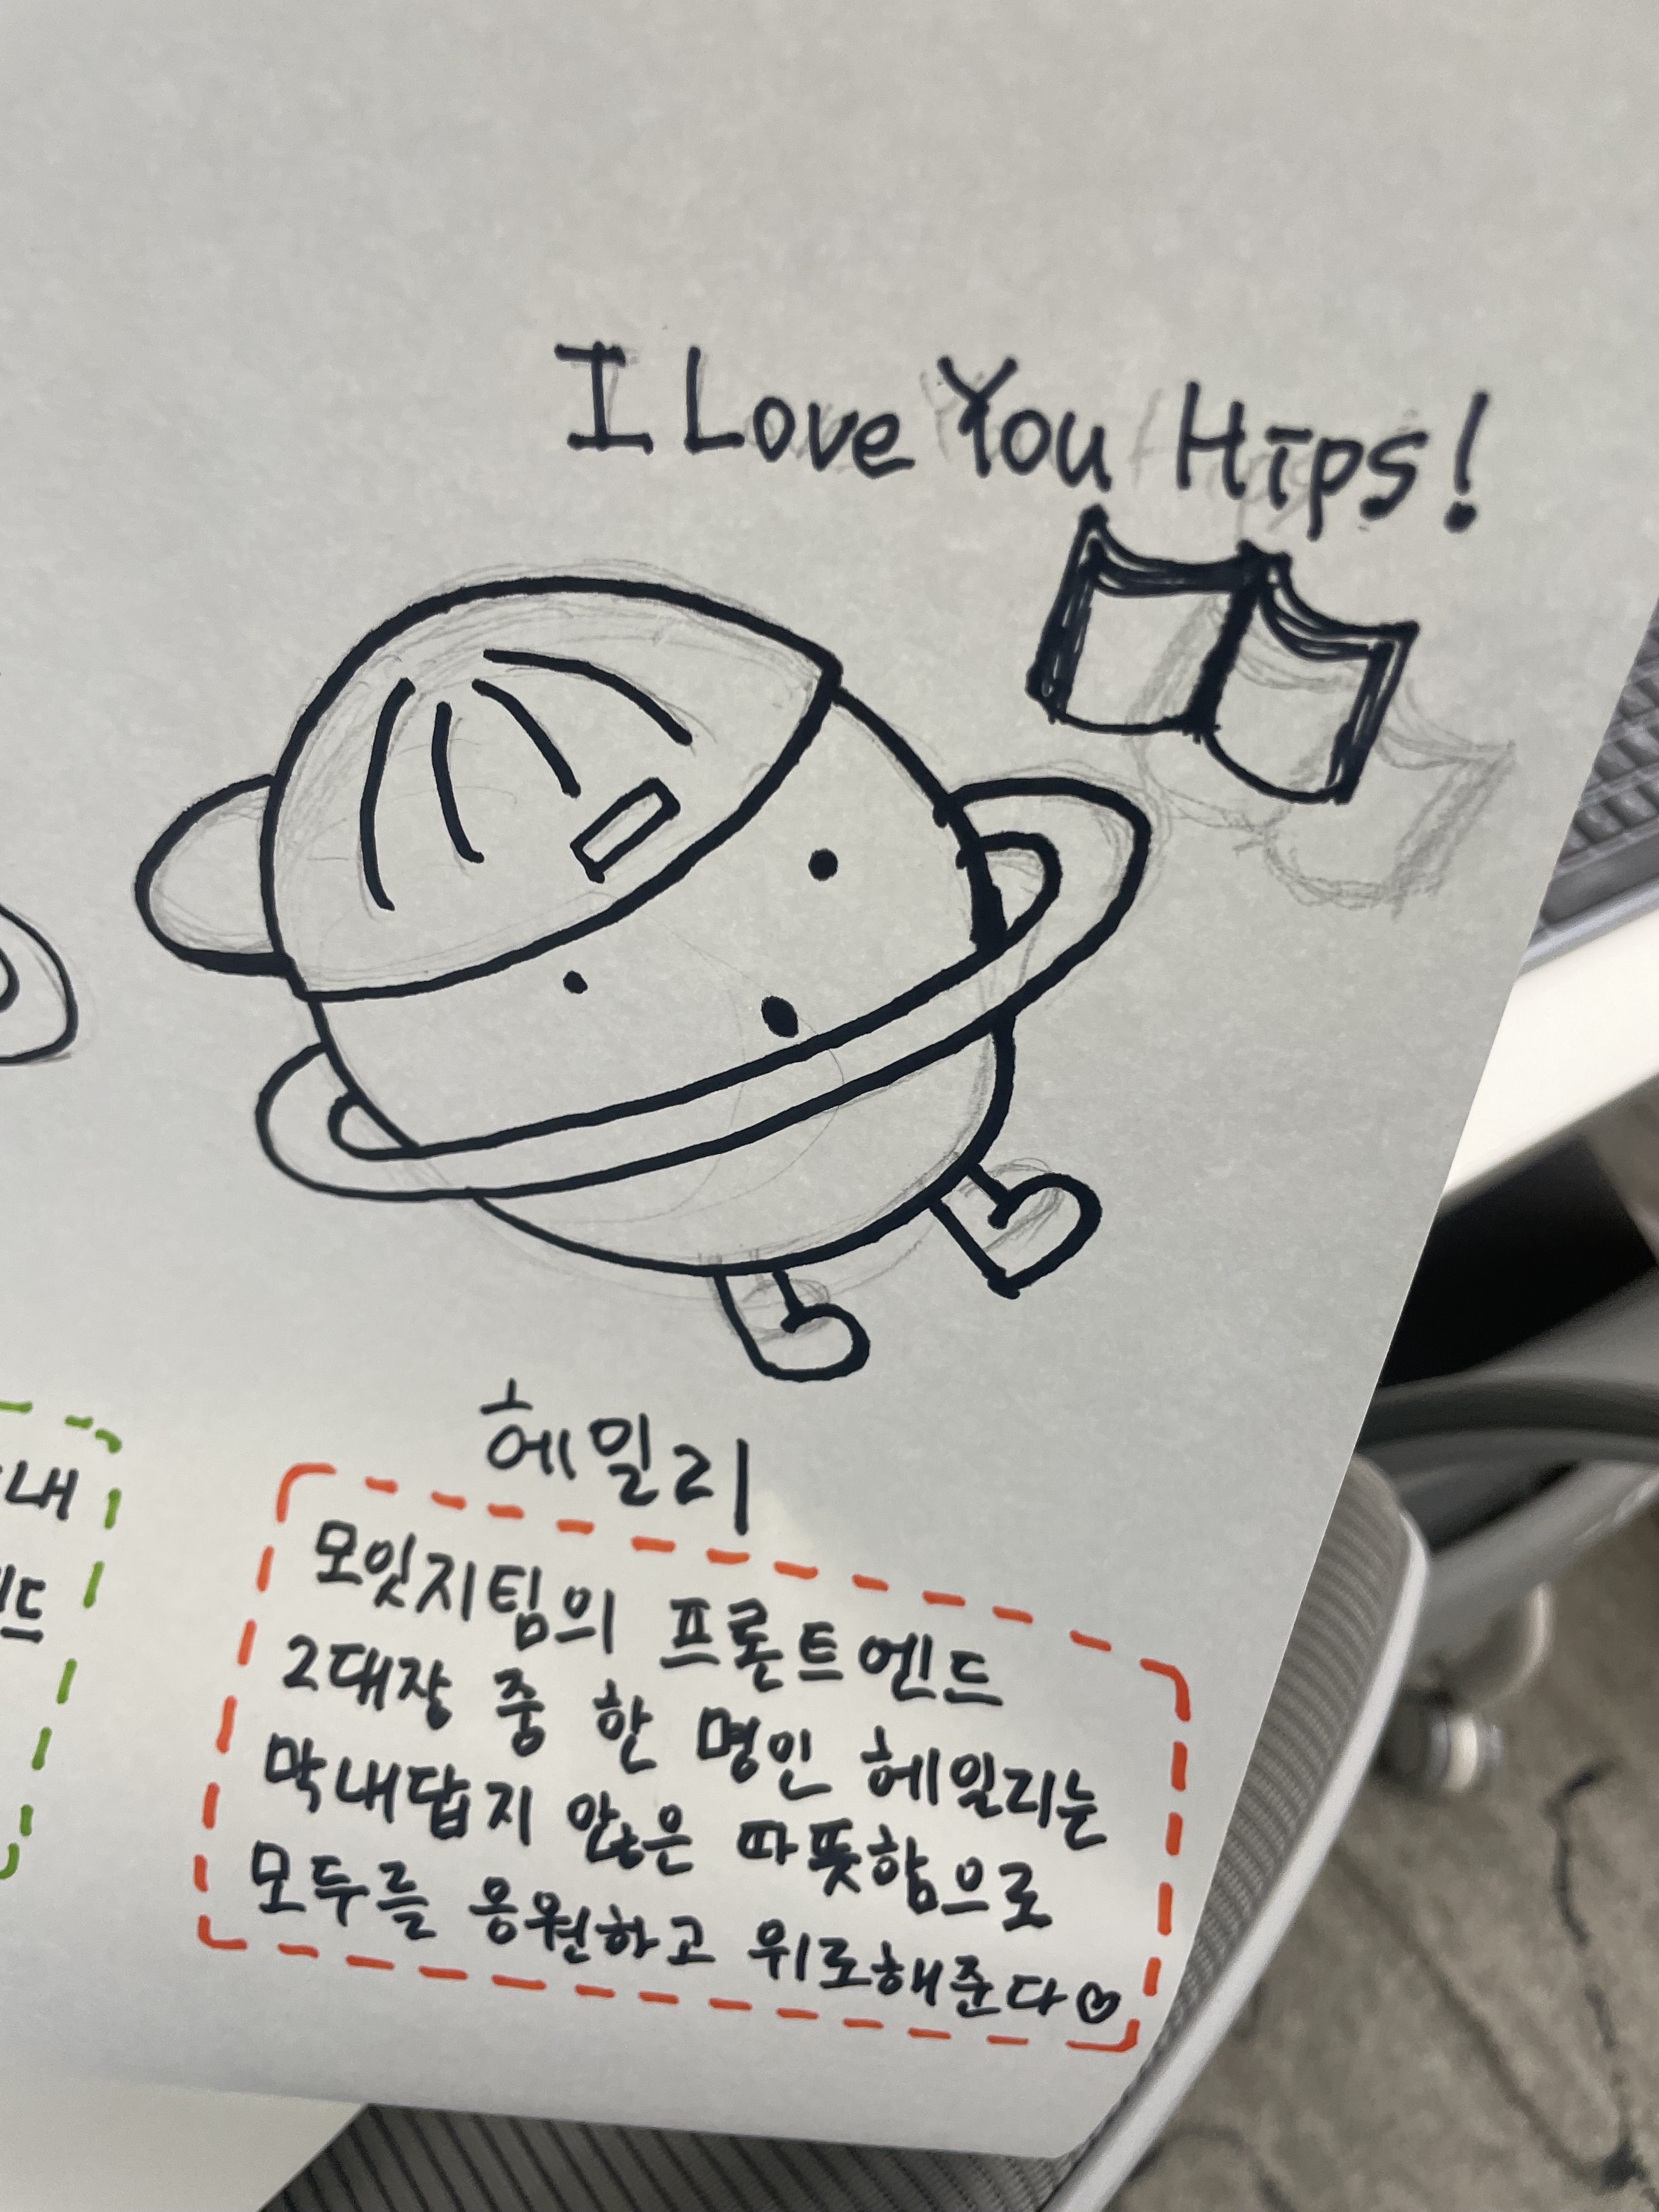 I Love You Hips!
헤일리
내
드
모잇지팀의 프론트엔드
2대장 중 한 명인 헤일리는
막내답지 않은 따뜻함으로
모두를 응원하고 위로해준다♡